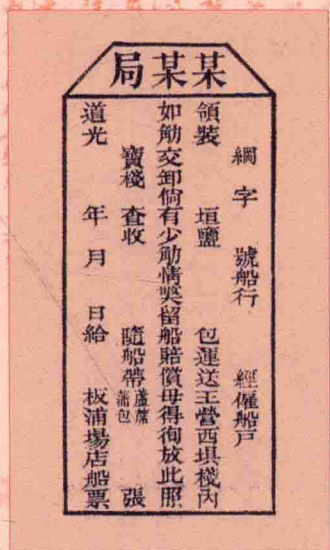 某某局
綱 字 號船行 經僱船戶
領裝 垣鹽 包運送王營西垻棧內
如觔交卸倘有少觔情獘留船賠償毋得徇放此照
寶棧 查收 隨船帶 蘆蓆 蒲包 張
道光 年 月 日給 板浦場店船票